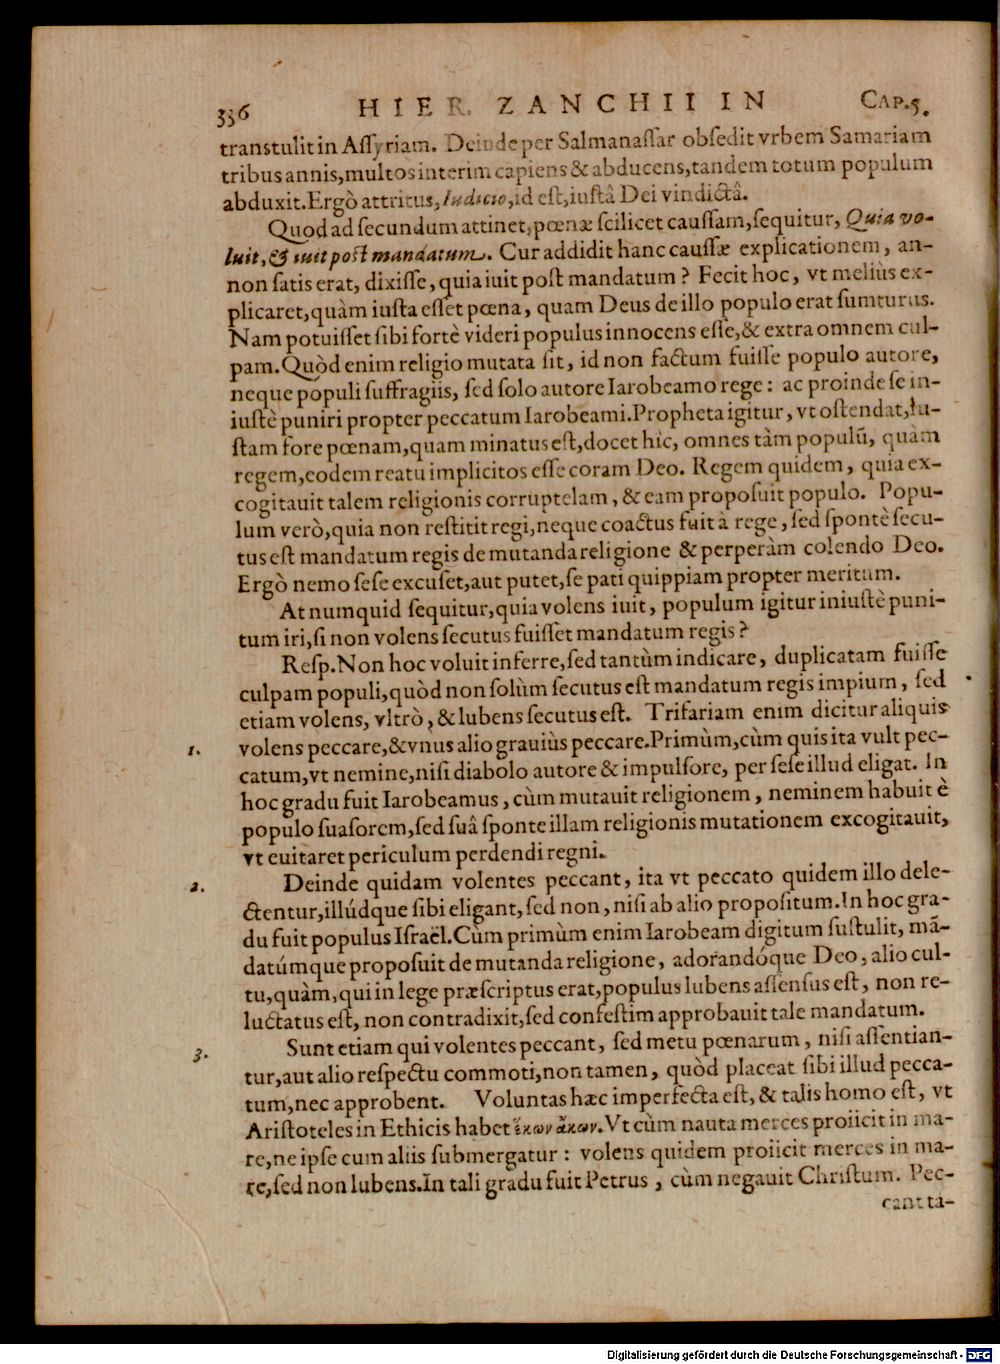 336 HIER. ZANCHII IN CAP. 5.
transtulit in Aſſyriam. Deinde per Salmanaſſar obſedit vrbem Samariam
tribus annis, multos interim capiens & abducens, tandem totum populum
abduxit. Ergò attritus, Iudicio, id eſt, iuſtâ Dei vindictâ.
Quod ad ſecundum attinet, pœnæ ſcilicet cauſſam, ſequitur, Quia vo-
luit, & iuit post mandatum. Cur addidit hanc cauſſæ explicationem, an-
non ſatis erat, dixiſſe, quia iuit poſt mandatum? Fecit hoc, vt meliùs ex-
plicaret, quàm iuſta eſſet pœna, quam Deus de illo populo erat ſumturus.
Nam potuiſſet ſibi fortè videri populus innocens eſſe, & extra omnem cul-
pam. Quòd enim religio mutata ſit, id non factum fuiſſe populo autore,
neque populi ſuffragiis, ſed ſolo autore Iarobeamo rege: ac proinde ſe in-
iuſtè puniri propter peccatum Iarobeami. Propheta igitur, vt oſtendat, Iu-
ſtam fore pœnam, quam minatus eſt, docet hîc, omnes tàm populũ, quàm
regem, eodem reatu implicitos eſſe coram Deo. Regem quidem, quia ex-
cogitauit talem religionis corruptelam, & eam propoſuit populo. Popu-
lum verò, quia non reſtitit regi, neque coactus fuit à rege, ſed ſpontè ſecu-
tus eſt mandatum regis de mutanda religione & perperàm colendo Deo.
Ergò nemo ſeſe excuſet, aut putet, ſe pati quippiam propter meritum.
At numquid ſequitur, quia volens iuit, populum igitur iniuſtè puni-
tum iri, ſi non volens ſecutus fuiſſet mandatum regis?
Reſp. Non hoc voluit inferre, ſed tantùm indicare, duplicatam fuiſſe
culpam populi, quòd non ſolùm ſecutus eſt mandatum regis impium, ſed
etiam volens, vltrò, & lubens ſecutus eſt. Trifariam enim dicitur aliquis
1. volens peccare, & vnus alio grauiùs peccare. Primùm, cùm quis ita vult pec-
catum, vt nemine, niſi diabolo autore & impulſore, per ſeſe illud eligat. In
hoc gradu fuit Iarobeamus, cùm mutauit religionem, neminem habuit è
populo ſuaſorem, ſed ſuâ ſponte illam religionis mutationem excogitauit,
vt euitaret periculum perdendi regni.
2. Deinde quidam volentes peccant, ita vt peccato quidem illo dele-
ctentur, illúdque ſibi eligant, ſed non, niſi ab alio propoſitum. In hoc gra-
du fuit populus Iſraël. Cùm primùm enim Iarobeam digitum ſuſtulit, mã-
datúmque propoſuit de mutanda religione, adorandóque Deo, alio cul-
tu, quàm, qui in lege præſcriptus erat, populus lubens aſſenſus eſt, non re-
luctatus eſt, non contradixit, ſed confeſtim approbauit tale mandatum.
3. Sunt etiam qui volentes peccant, ſed metu pœnarum, niſi aſſentian-
tur, aut alio reſpectu commoti, non tamen, quòd placeat ſibi illud pecca-
tum, nec approbent. Voluntas hæc imperfecta eſt, & talis homo eſt, vt
Ariſtoteles in Ethicis habet ἑκων ἄκων. Vt cùm nauta merces proiicit in ma-
re, ne ipſe cum aliis ſubmergatur: volens quidem proiicit merces in ma-
re, ſed non lubens. In tali gradu fuit Petrus, cùm negauit Chriſtum. Pec-
cant ta-
Digitalisierung gefördert durch die Deutsche Forschungsgemeinschaft - DFG